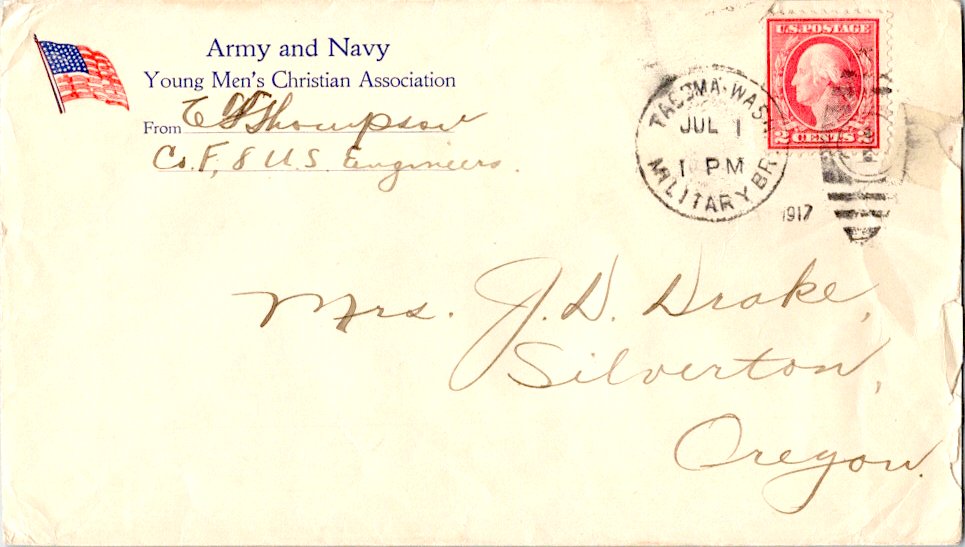 Army and Navy
Young Men's Christian Association
From E G Thompson
Co. F, 8 U.S. Engineers.
U.S. POSTAGE
2 CENTS 2
TACOMA, WASH.
JUL 1
1 PM
MILITARY BR.
1917
Mrs. J. D. Drake,
Silverton,
Oregon.